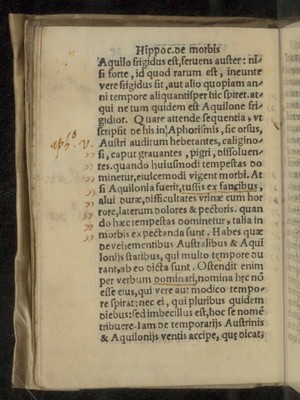 Hippoc. de morbis
Aquilo frigidus est, feruens auster: ni-
si forte, id quod rarum est, ineunte
vere frigidus sit, aut alio quopiam an-
ni tempore aliquantisper hic spiret. at-
qui ne tum quidem est Aquilone fri-
gidior. Quare attende sequentia, vt
scripsit de his in Aphorismis, sic orsus,
aph. 5 V. Austri auditum hebetantes, caligino-
si, caput grauantes, pigri, dissoluen-
tes. quando huiusmodi tempestas do
minetur, eiuscemodi vigent morbi. At
si Aquilonia fuerit, tussis ex faucibus,
alui duræ, difficultates vrinæ cum hor
rore, laterum dolores & pectoris. quan
do hæc tempestas dominetur, talia in
morbis expectanda sunt. Habes quæ
de vehementibus Australibus & Aqui
lonijs statibus, qui multo tempore du
rant, ab eo dicta sunt. Ostendit enim
per verbum dominari, nomina hęc nō
esse eius, qui vere aut modico tempo-
re spirat: nec ei, qui pluribus quidem
diebus: sed imbecillus est, hoc se nomē
tribuere. Iam de temporarijs Austrinis
& Aquilonijs ventis accipe, quę dicat,